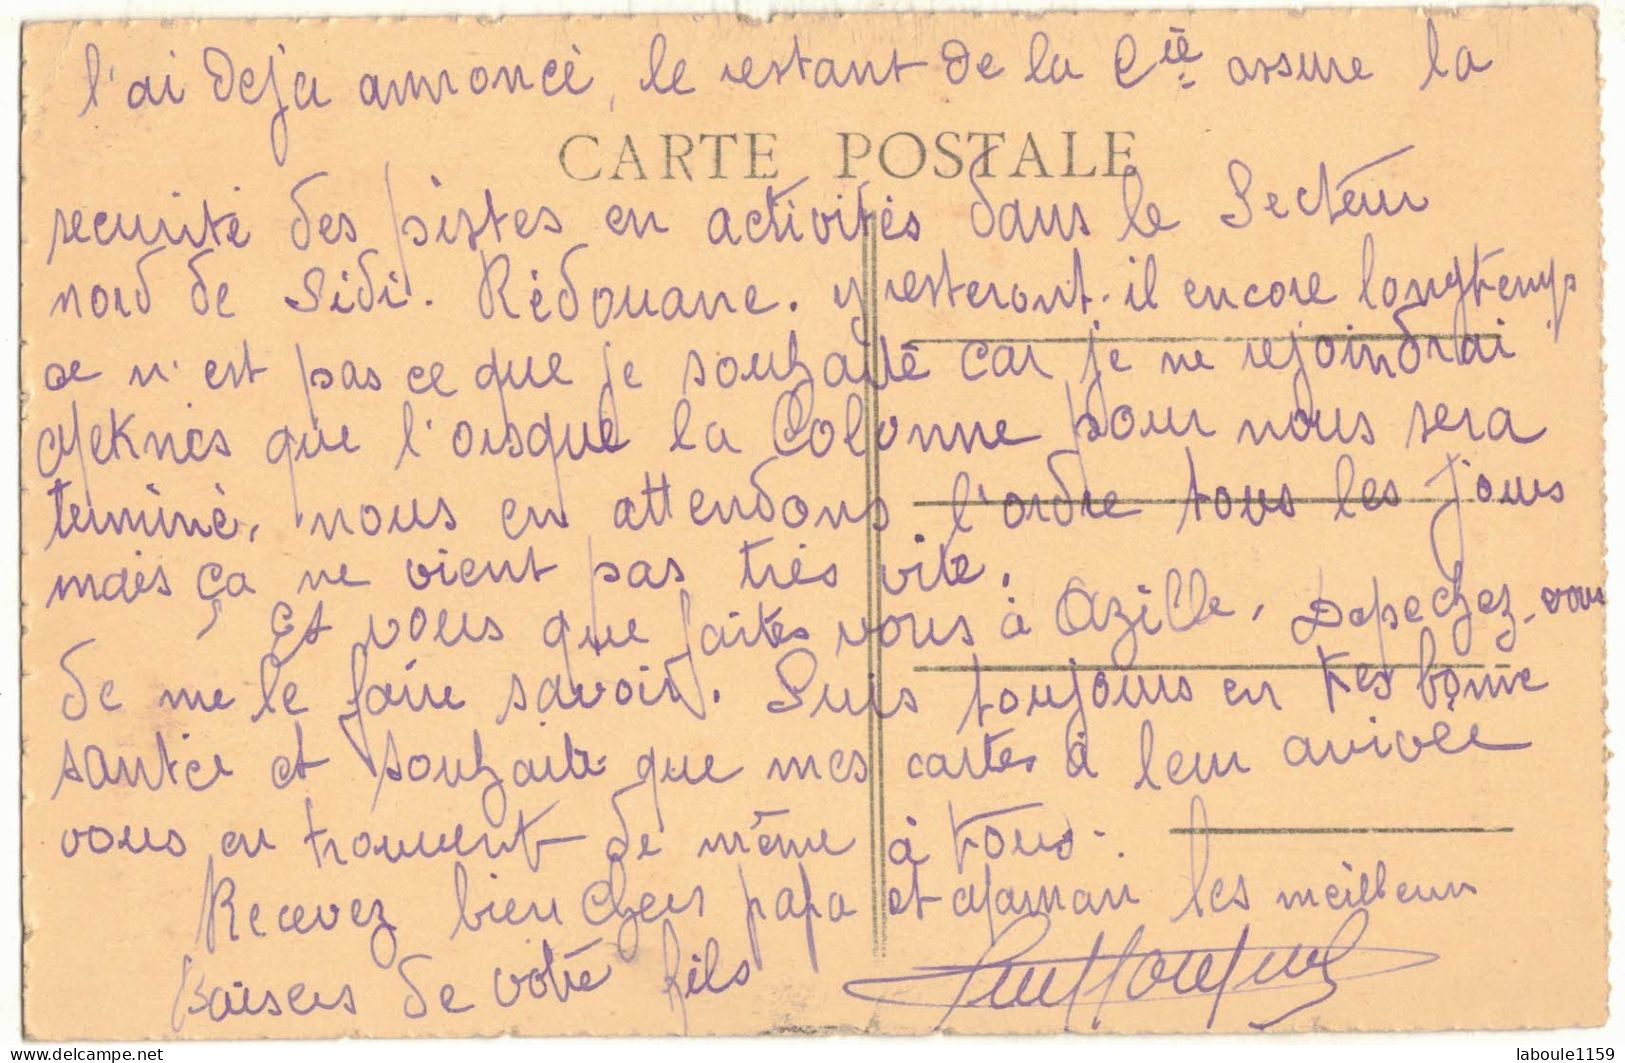 l'ai deja annoncé, le restant de la Cie assure la
CARTE POSTALE
securité des pistes en activités dans le Secteur
nord de Sidi. Rédouane. y resteront-il encore longtemps
ce n'est pas ce que je souhaite car je ne rejoindrai
Meknès que l'orsque la Colonne pour nous sera
terminé, nous en attendons l'ordre tous les jours
mais ça ne vient pas très vite.
Et vous que faites vous à Azille, Depechez-vous
de me le faire savoir. Suis toujours en tres bonne
santée et souhaite que mes cartes à leur arrivée
vous en trouvent de même à tous.
Recevez bien chers papa et Maman les meilleurs
Baisers de votre fils
delcampe.net
laboule1159